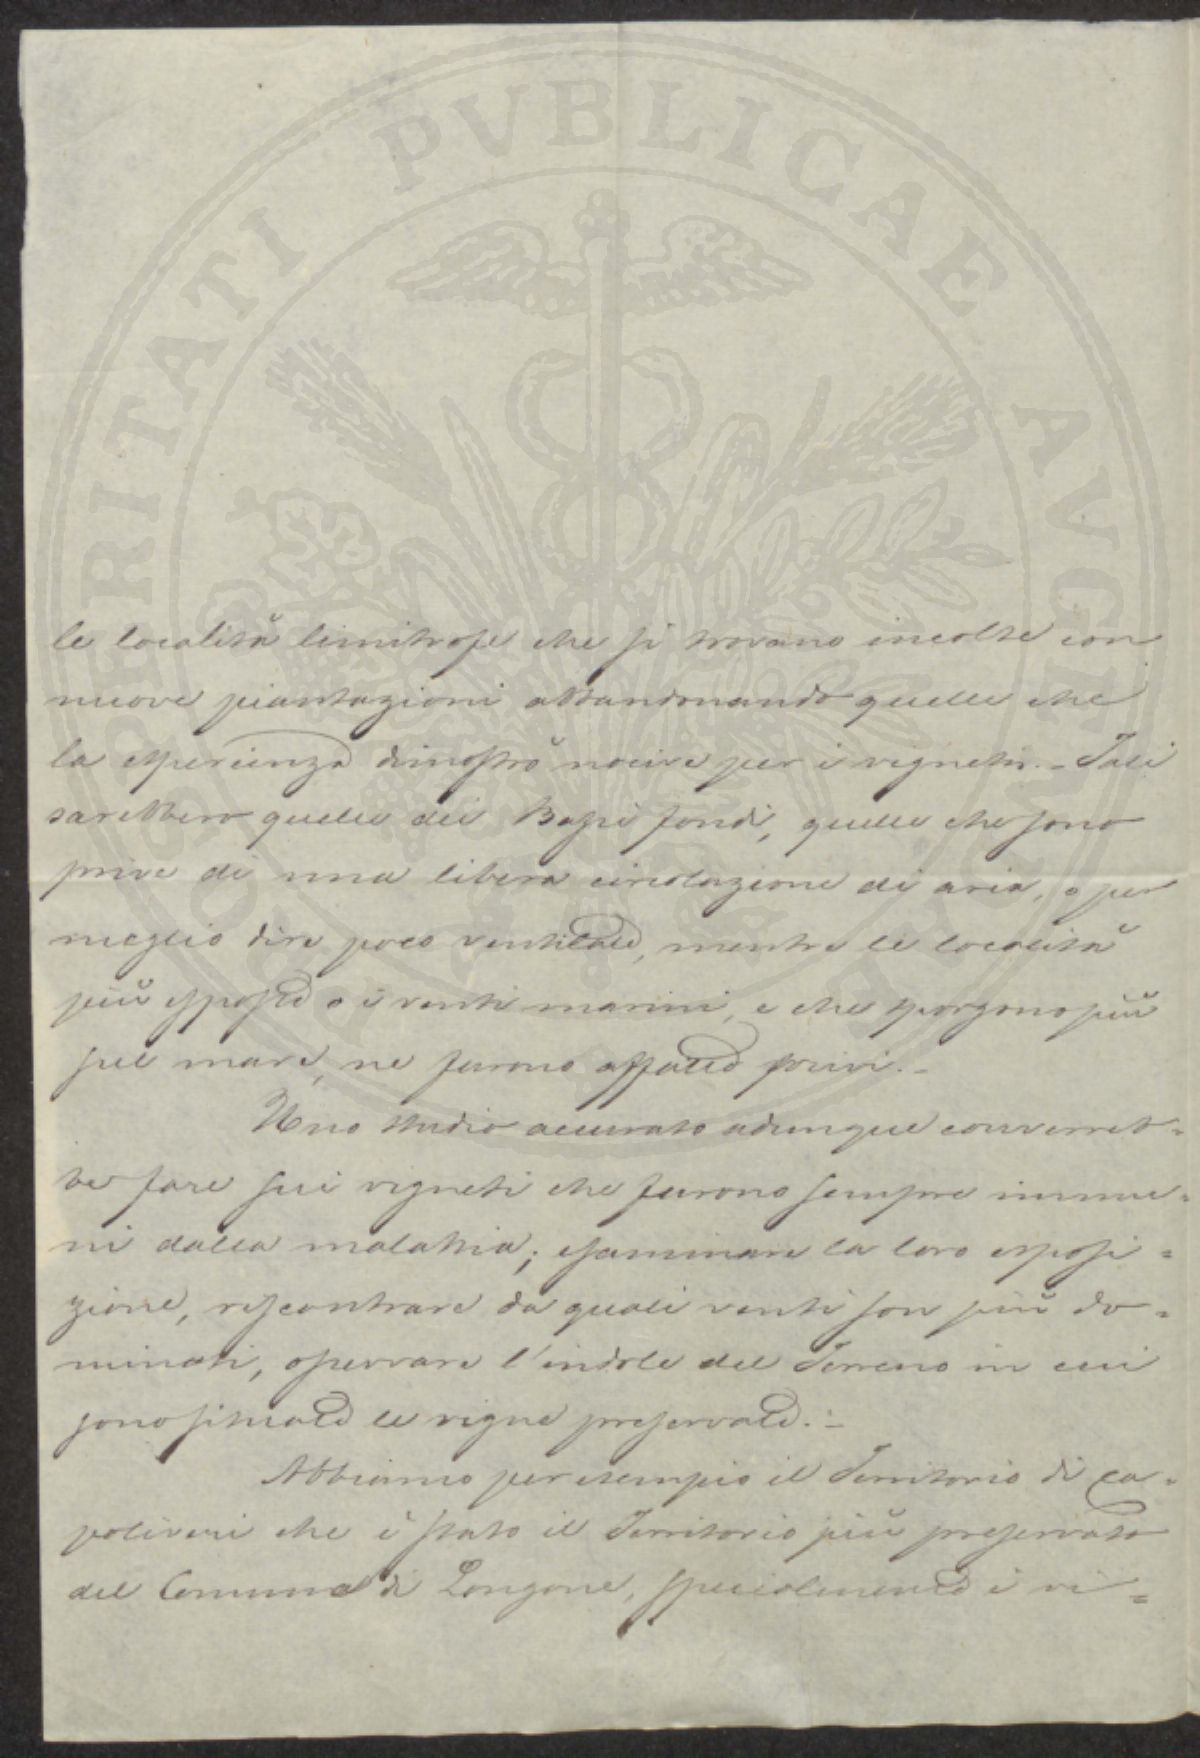 PROSPERITATI PVBLICAE AVGENDAE
le località limitrofe che si trovano incolte con
nuove piantazioni abbandonando quelle che
la esperienza dimostrò nocive per i vigneti. - Tali
sarebbero quelle dei Bassi fondi, quelle che sono
prive di una libera circolazione di aria, o per
meglio dire poco ventilate, mentre le località
più esposte a i venti marini, e che sporgono più
sul mare, ne furono affatto privi. -
Uno studio accurato adunque converreb=
be fare sui vigneti che furono sempre immu=
ni dalla malattia; esaminare la loro esposi=
zione, riscontrare da quali venti son più do=
minati, osservare l'indole del Terreno in cui
sono situate le vigne preservate. -
Abbiamo per esempio il Territorio di Ca=
poliveri che è stato il Territorio più preservato
del Comune di Longone, specialmente i vi=